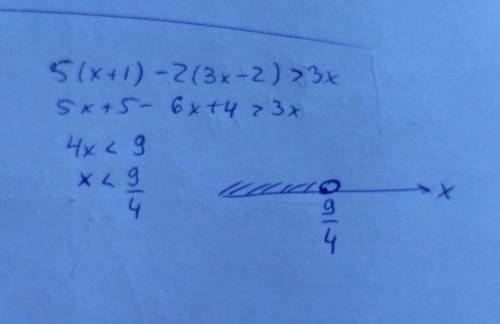 5(x+1) - 2(3x-2) > 3x
5x+5- 6x+4 > 3x
4x < 9
x < 9/4
x
9/4